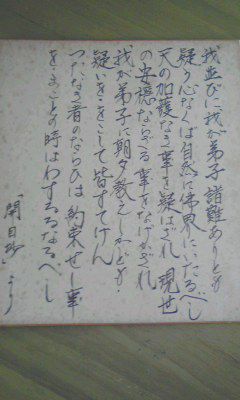 我並びに我が弟子諸難ありとも
疑う心なくば自然に佛界にいたるべし
天の加護なき事を疑はざれ 現世
の安穏ならざる事をなげかざれ
我が弟子に朝夕教えしかども・
疑いををこして皆すてけん
つたなき者のならひは約束せし事
をまことの時はわするるなるべし
「開目抄」より